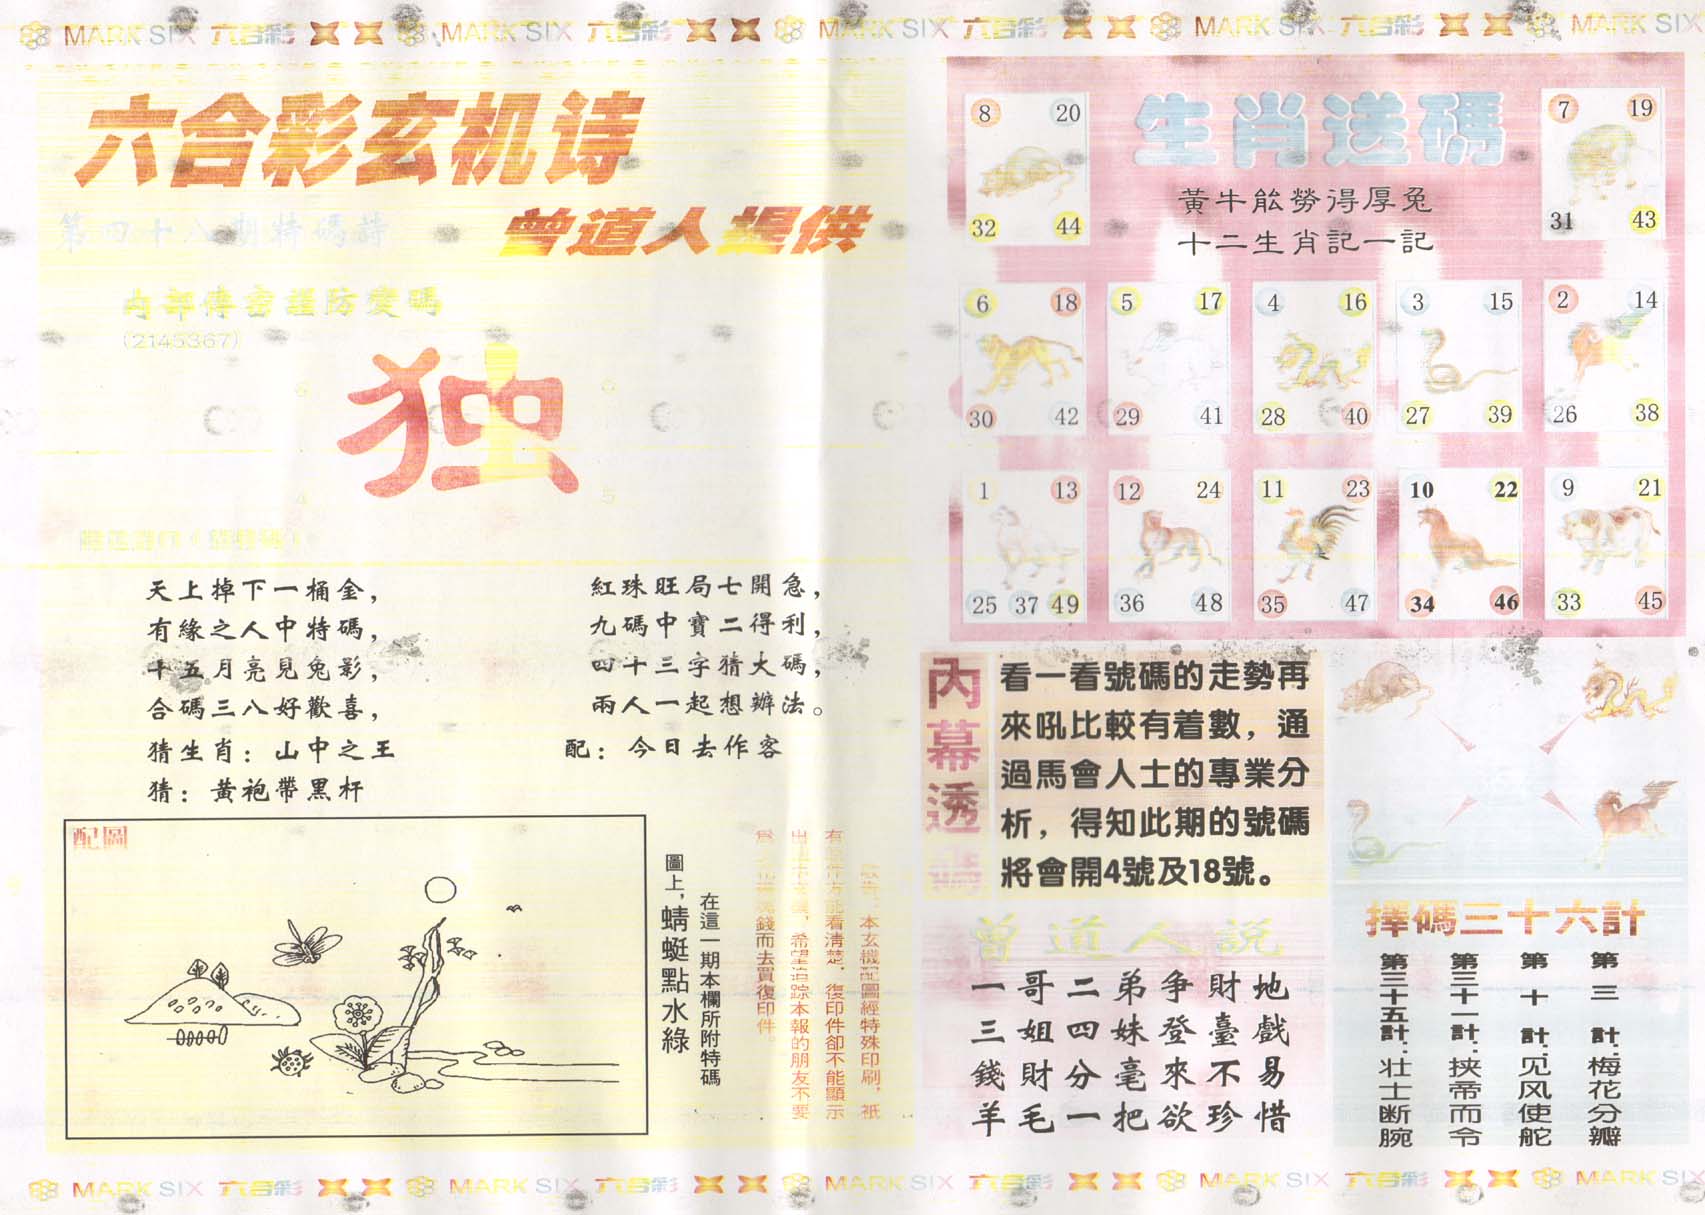 MARK SIX 六合彩 MARK SIX 六合彩 MARK SIX 六合彩 MARK SIX 六合彩 MARK SIX
六合彩玄机诗
第四十八期特碼詩
曾道人提供
內部傳密謹防變碼
(2145367)
独
6
6
4
5
天上掉下一桶金，
有緣之人中特碼，
十五月亮見兔影，
合碼三八好歡喜，
猜生肖：山中之王
猜：黃袍帶黑杆
紅珠旺局七開急，
九碼中寶二得利，
四十三字猜大碼，
兩人一起想辦法。
配：今日去作客
配圖
在這一期本欄所附特碼
圖上，蜻蜓點水綠
本玄機配圖經特殊印刷，祇
看清楚，復印件卻不能顯示
希望追踪本報的朋友不要
錢而去買復印件。
生肖送碼
黃牛能勞得厚兔
十二生肖記一記
8 20
32 44
7 19
31 43
6 18
30 42
5 17
29 41
4 16
28 40
3 15
27 39
2 14
26 38
1 13
25 37 49
12 24
36 48
11 23
35 47
10 22
34 46
9 21
33 45
內幕透碼
看一看號碼的走勢再
來吼比較有着數，通
過馬會人士的專業分
析，得知此期的號碼
將會開4號及18號。
曾道人説
一哥二弟争財地
三姐四妹登臺戲
錢財分毫來不易
羊毛一把欲珍惜
擇碼三十六計
第三計：梅花分瓣
第十計：见风使舵
第三十一計：挟帝而令
第三十五計：壮士断腕
MARK SIX 六合彩 MARK SIX 六合彩 MARK SIX 六合彩 MARK SIX 六合彩 MARK SIX